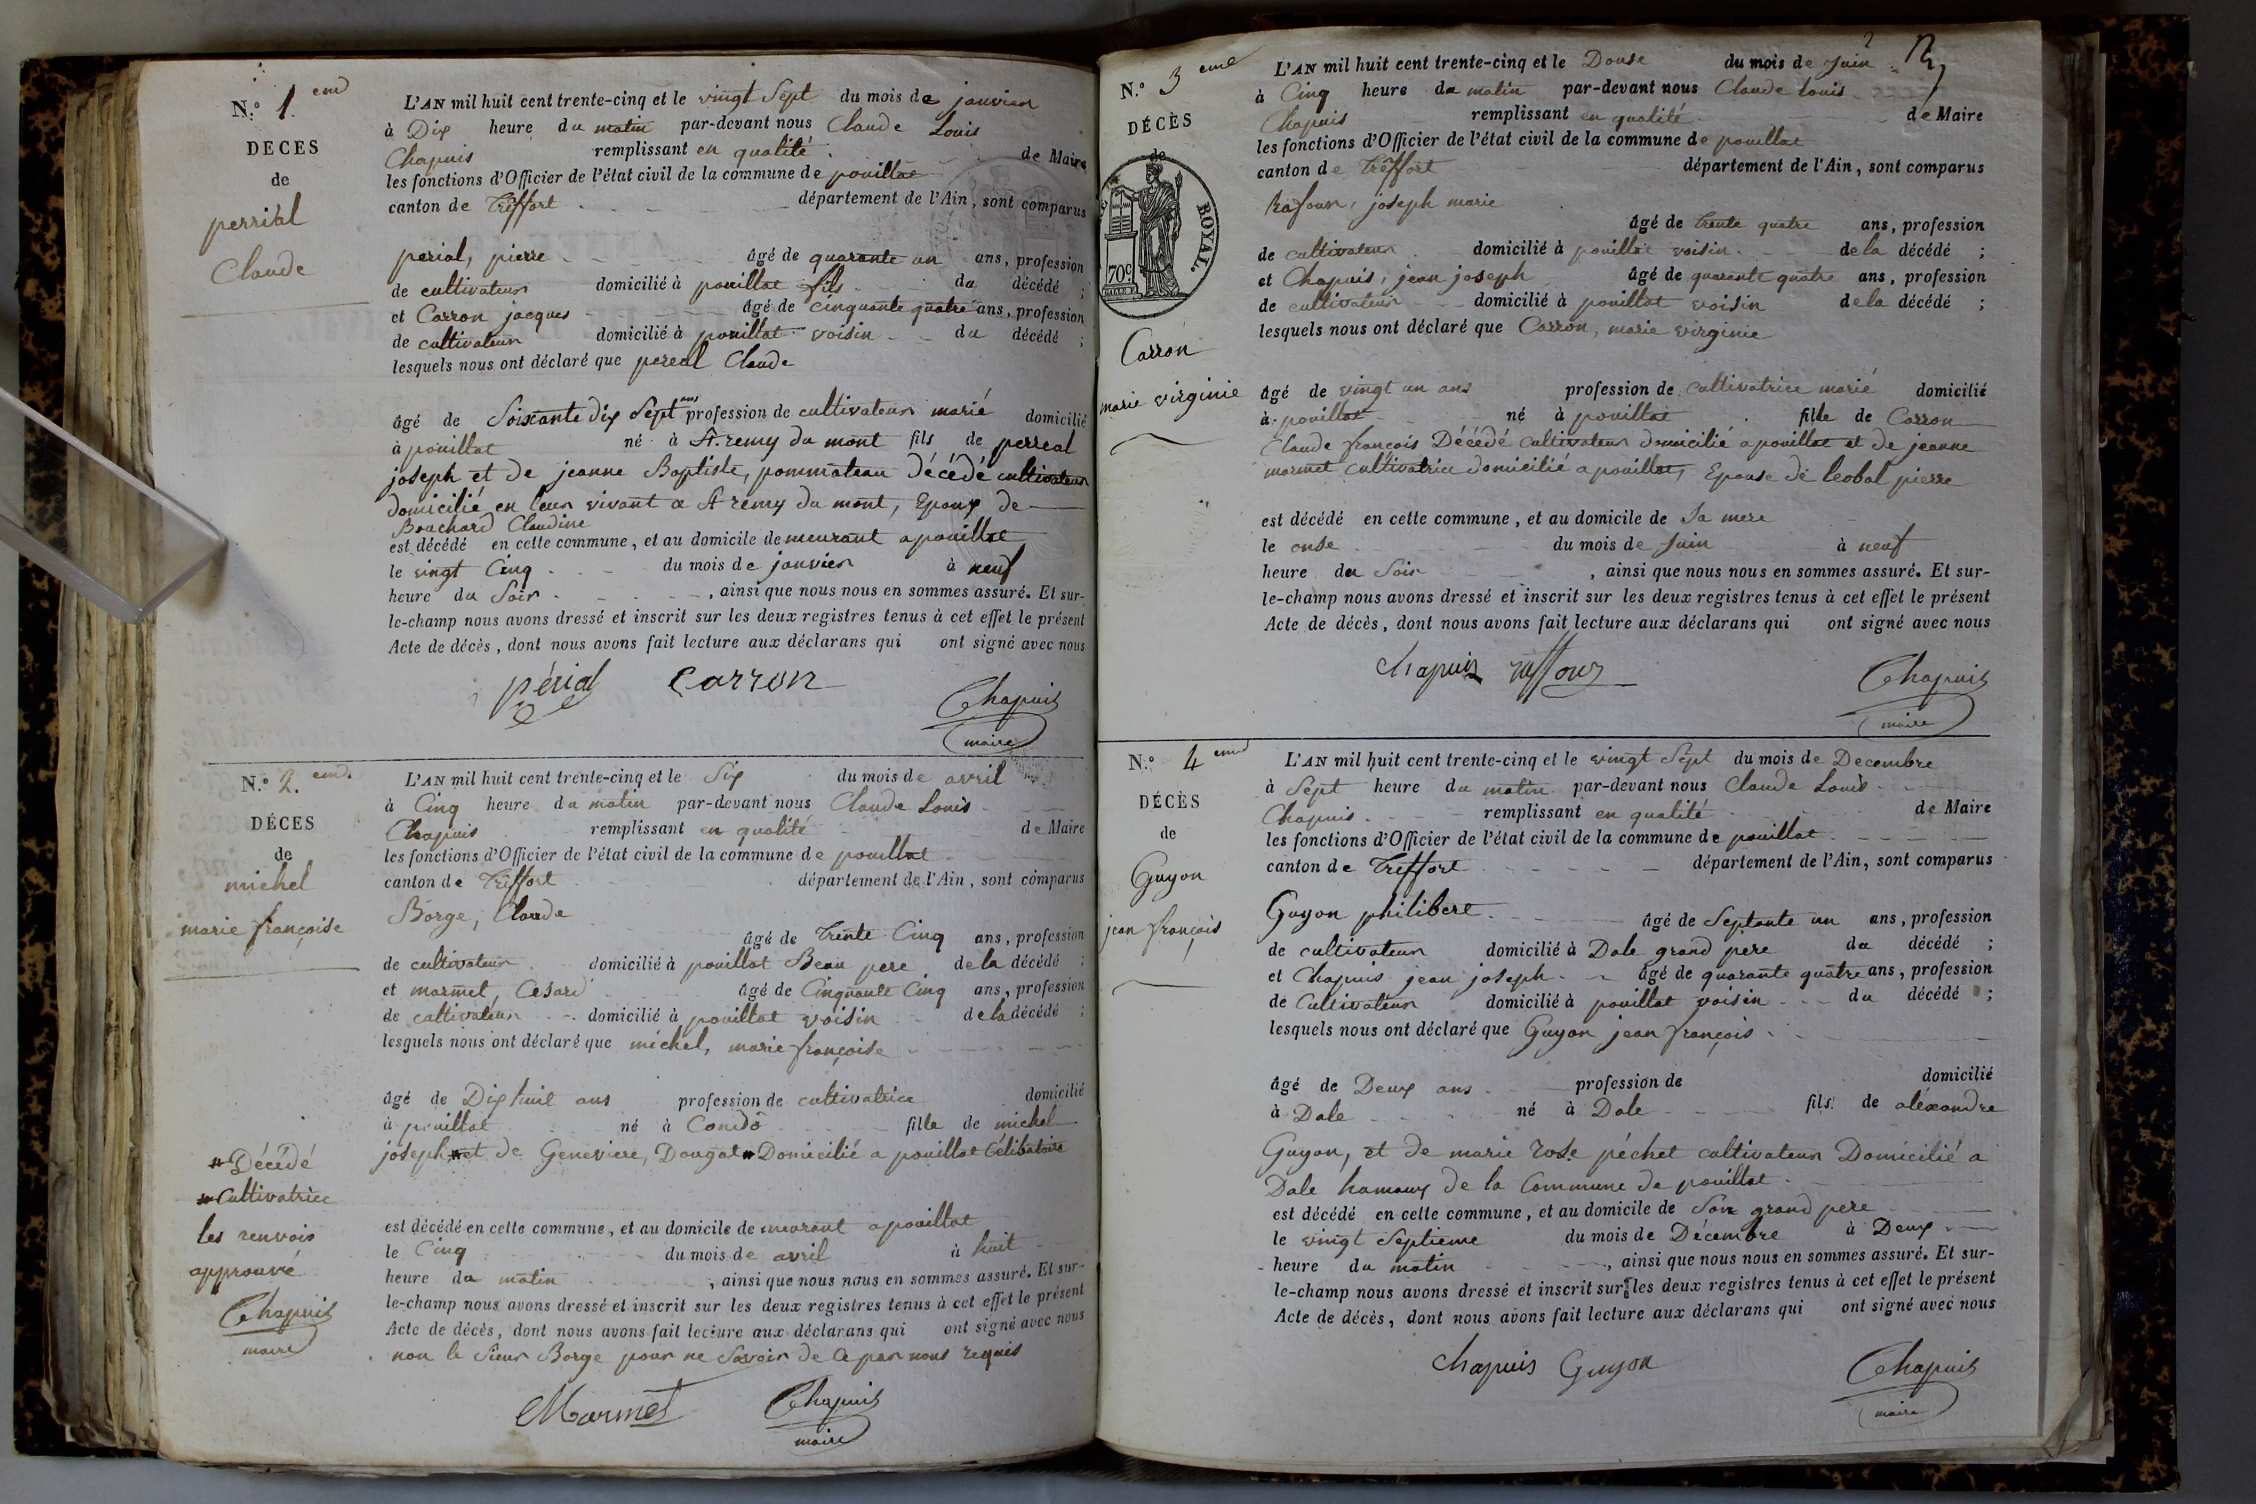 N.º 1.em
DECES
de
perriàl
Claude
L'AN mil huit cent trente-cinq et le vingt Sept du mois de janvier
à Dix heure du matin par-devant nous Claude Louis
Chapuis remplissant en qualité de Maire
les fonctions d'Officier de l'état civil de la commune de pouillat
canton de Treffort département de l'Ain, sont comparus
perial, pierre âgé de quarante un ans, profession
de cultivateur domicilié à pouillat fils du décédé ;
et Carron jacques âgé de cinquante quatre ans, profession
de cultivateur domicilié à pouillat voisin du décédé ;
lesquels nous ont déclaré que pereal Claude
âgé de Soixante dix Sept ans profession de cultivateur marié domicilié
à pouillat né à St. remy du mont fils de perreal
joseph et de jeanne Baptiste, pommateau décédé cultivateur
domicilié en leur vivant a St remy du mont, Epoux de
Bouchard Claudine
est décédé en cette commune, et au domicile de meurant a pouillat
le vingt Cinq du mois de janvier à neuf
heure du Soir , ainsi que nous nous en sommes assuré. Et sur-
le-champ nous avons dressé et inscrit sur les deux registres tenus à cet effet le présent
Acte de décès, dont nous avons fait lecture aux déclarans qui ont signé avec nous
périal Carron Chapuis
maire
N.º 2.em.
DÉCES
de
michel
marie françoise
L'AN mil huit cent trente-cinq et le Six du mois de avril
à Cinq heure du matin par-devant nous Claude Louis
Chapuis remplissant en qualité de Maire
les fonctions d'Officier de l'état civil de la commune de pouillat
canton de Treffort département de l'Ain, sont comparus
Borge, Claude
âgé de Trente Cinq ans, profession
de cultivateur domicilié à pouillat Beau pere de la décédé ;
et marmet Césard âgé de Cinquante Cinq ans, profession
de cultivateur domicilié à pouillat voisin de la décédé ;
lesquels nous ont déclaré que michel, marie françoise
âgé de Dix huit ans profession de cultivatrice domicilié
à pouillat né à Condô fille de michel
joseph # et de Genevieve, Dougat # Domicilié a pouillat Célibataire
# Décédé
# Cultivatrice
les renvois
approuvé
Chapuis
maire
est décédé en cette commune, et au domicile de meurant a pouillat
le Cinq du mois de avril à huit
heure du matin , ainsi que nous nous en sommes assuré. Et sur-
le-champ nous avons dressé et inscrit sur les deux registres tenus à cet effet le présent
Acte de décès, dont nous avons fait lecture aux déclarans qui ont signé avec nous
non le Sieur Borge pour ne Savoir de Ce par nous requis
Marmet Chapuis
maire
N.º 3 eme
DÉCÈS
de
ROYAL.
70c
Carron
marie virginie
L'AN mil huit cent trente-cinq et le Douse du mois de Juin
à Cinq heure du matin par-devant nous Claude Louis
Chapuis remplissant en qualité de Maire
les fonctions d'Officier de l'état civil de la commune de pouillat
canton de Treffort département de l'Ain, sont comparus
Rafour, joseph marie
âgé de trente quatre ans, profession
de cultivateur domicilié à pouillat voisin de la décédé ;
et Chapuis, jean joseph âgé de quarante quatre ans, profession
de cultivateur domicilié à pouillat voisin de la décédé ;
lesquels nous ont déclaré que Carron, marie virginie
âgé de vingt un ans profession de Cultivatrice marié domicilié
à pouillat né à pouillat fille de Carron
Claude françois Décédé Cultivateur domicilié a pouillat et de jeanne
marmet Cultivatrice domicilié a pouillat, Epouse de leobal pierre
est décédé en cette commune, et au domicile de Sa mere
le onse du mois de Juin à neuf
heure du Soir , ainsi que nous nous en sommes assuré. Et sur-
le-champ nous avons dressé et inscrit sur les deux registres tenus à cet effet le présent
Acte de décès, dont nous avons fait lecture aux déclarans qui ont signé avec nous
chapuis raffour Chapuis
maire
N.º 4 em
DÉCÈS
de
Guyon
jean françois
L'AN mil huit cent trente-cinq et le vingt Sept du mois de Decembre
à Sept heure du matin par-devant nous Claude Louis
Chapuis remplissant en qualité de Maire
les fonctions d'Officier de l'état civil de la commune de pouillat
canton de Treffort département de l'Ain, sont comparus
Guyon philibert âgé de Septante un ans, profession
de cultivateur domicilié à Dale grand pere du décédé ;
et Chapuis jean joseph âgé de quarante quatre ans, profession
de Cultivateur domicilié à pouillat voisin du décédé ;
lesquels nous ont déclaré que Guyon jean françois
âgé de Deux ans profession de domicilié
à Dale né à Dale fils de aléxandre
Guyon, et de marie rose péchet cultivateur Domicilié a
Dale hamaux de la Commune de pouillat
est décédé en cette commune, et au domicile de Son grand pere
le vingt Septieme du mois de Décembre à Deux
heure du matin , ainsi que nous nous en sommes assuré. Et sur-
le-champ nous avons dressé et inscrit sur les deux registres tenus à cet effet le présent
Acte de décès, dont nous avons fait lecture aux déclarans qui ont signé avec nous
chapuis Guyon Chapuis
maire